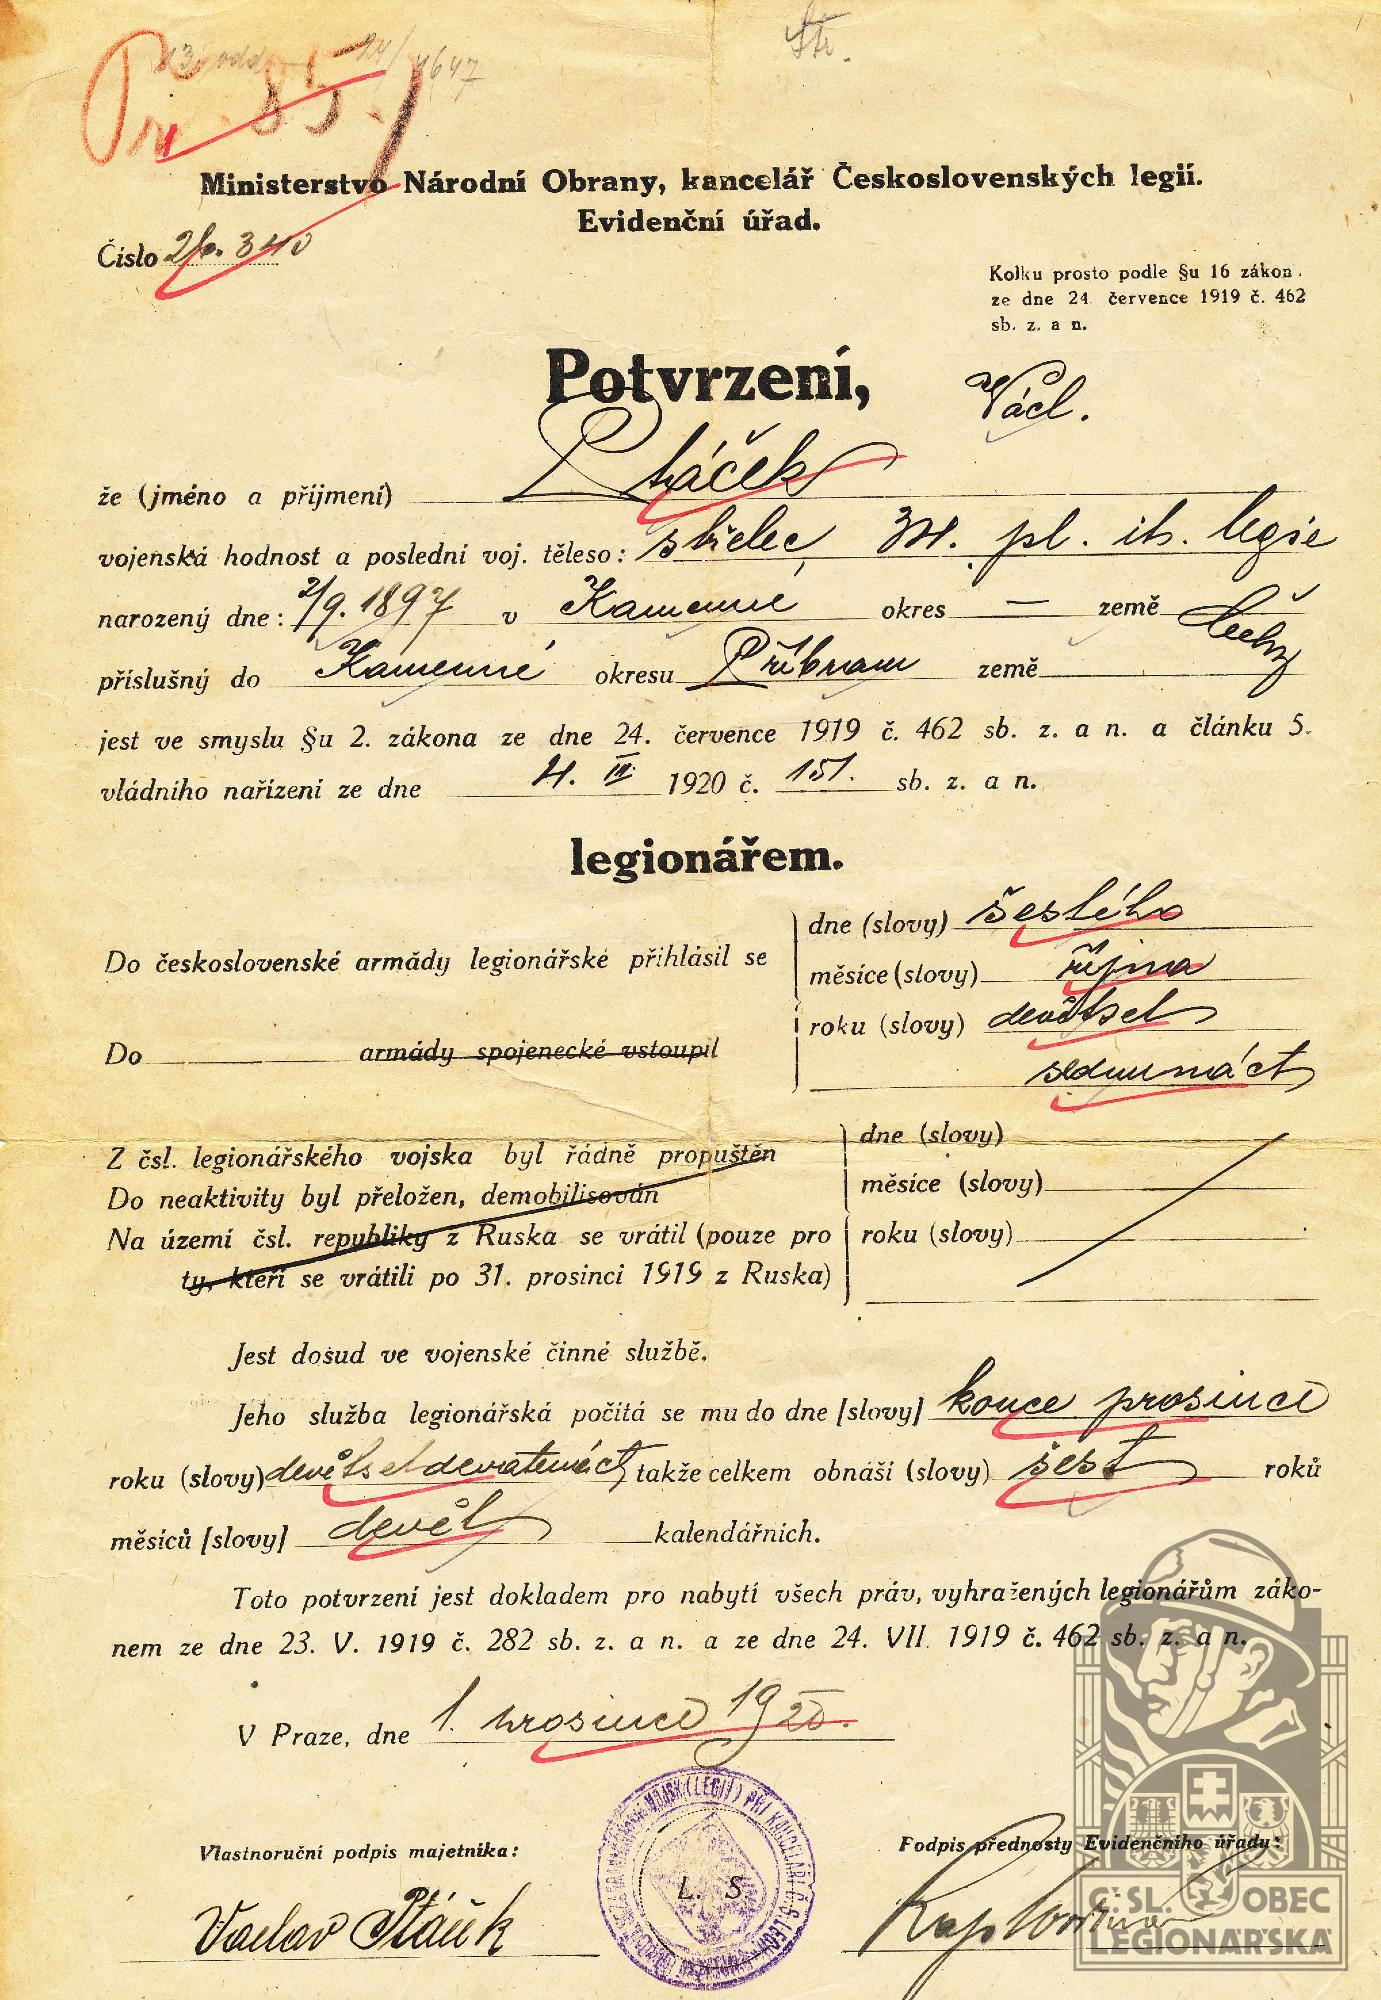 13. odd. 24/1647
Str.
Pr. 85.
Ministerstvo Národní Obrany, kancelář Československých legií.
Evidenční úřad.
Číslo 26.340
Kolku prosto podle §u 16 zákon.
ze dne 24 července 1919 č. 462
sb. z. a n.
Potvrzení,
Václ.
že (jméno a příjmení) Ptáček
vojenská hodnost a poslední voj. těleso: střelec, 34. pl. it. legie
narozený dne: 2/9. 1897 v Kamenné okres — země Čechy
příslušný do Kamenné okresu Příbram země
jest ve smyslu §u 2. zákona ze dne 24. července 1919 č. 462 sb. z. a n. a článku 5.
vládního nařízení ze dne 4. III. 1920 č. 151. sb. z. a n.
legionářem.
Do československé armády legionářské přihlásil se
dne (slovy) šestého
měsíce (slovy) října
roku (slovy) devětset
sedmnáct
Do armády spojenecké vstoupil
Z čsl. legionářského vojska byl řádně propuštěn
Do neaktivity byl přeložen, demobilisován
Na území čsl. republiky z Ruska se vrátil (pouze pro
ty, kteří se vrátili po 31. prosinci 1919 z Ruska)
dne (slovy)
měsíce (slovy)
roku (slovy)
Jest dosud ve vojenské činné službě.
Jeho služba legionářská počítá se mu do dne [slovy] konce prosince
roku (slovy) devětsetdevatenáct, takže celkem obnáší (slovy) šest roků
měsíců [slovy] devět kalendářních.
Toto potvrzení jest dokladem pro nabytí všech práv, vyhražených legionářům záko-
nem ze dne 23. V. 1919 č. 282 sb. z. a n. a ze dne 24. VII. 1919 č. 462 sb. z. a n.
V Praze, dne 1. prosince 1920.
Vlastnoruční podpis majetníka:
L. S.
Podpis přednosty Evidenčního úřadu:
Václav Ptáček
Č. SL. OBEC
LEGIONÁŘSKÁ